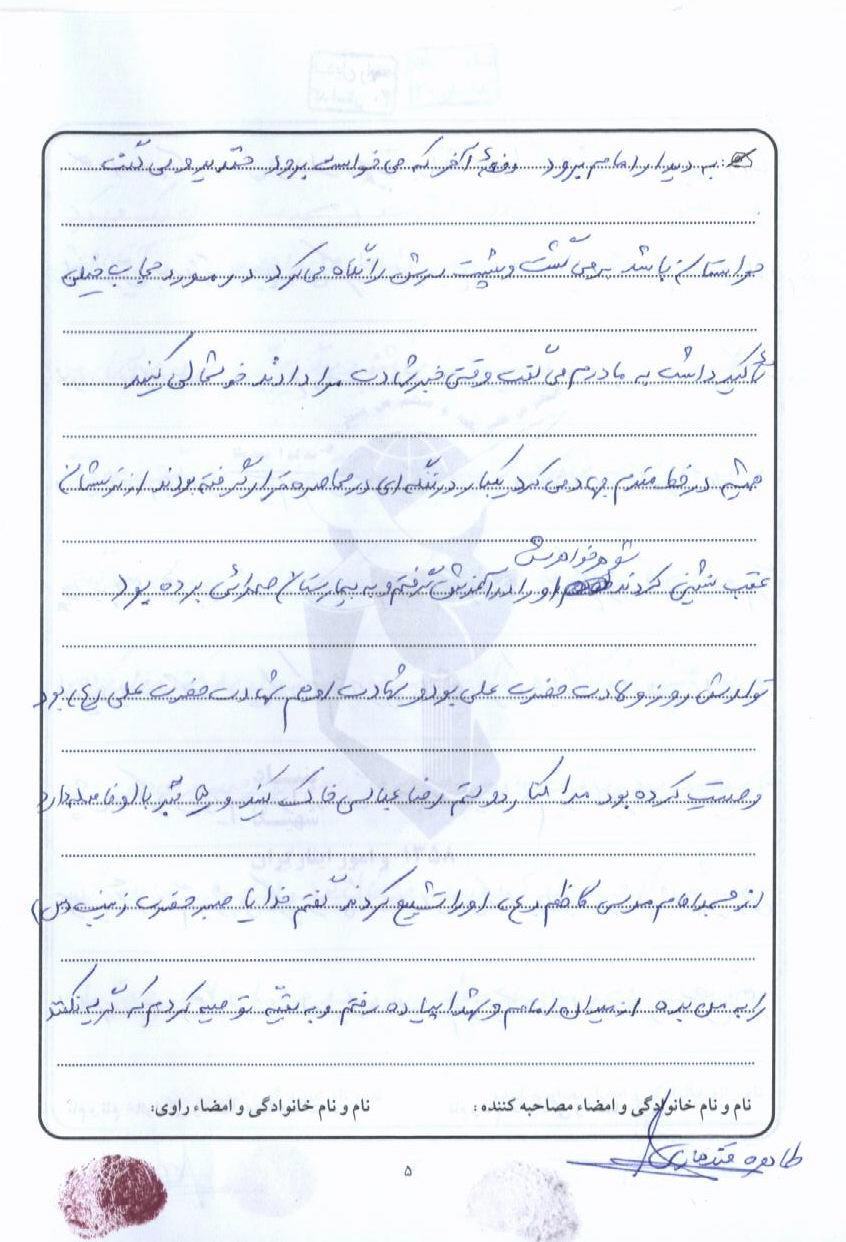 به دیدار امام برود دفعهٔ آخر که می خواست برود خندید و می گفت
حواستان باشد برمی گشت و پشت سرش را نگاه می کرد در مورد حجاب خیلی
تأکید داشت به مادرم می گفت وقتی خبر شهادت مرا دادند خوشحالی کنید
همیشه در خط مقدم جهاد می کرد یکبار در تنگه ای در محاصره قرار گرفته بودند از ترسشان
شوهر خواهرش
عقب نشینی کردند او را در آغوش گرفتم و به بیمارستان صحرائی برده بود
تولدش روز ولادت حضرت علی بود و شهادت او هم شهادت حضرت علی (ع) بود
وصیت کرده بود مرا کنار دوستم رضا عباسی خاک کنید و ۵ قبر بالاو فاصله دارد
از مسجد امام موسی کاظم (ع) او را تشییع کردند گفتم خدایا صبر حضرت زینب (س)
را به من بده از میدان امام و شهدا پیاده رفتم و به بقیّه توصیه کردم که گریه نکنند
نام و نام خانوادگی و امضاء مصاحبه کننده : نام و نام خانوادگی و امضاء راوی:
طاهره
۵